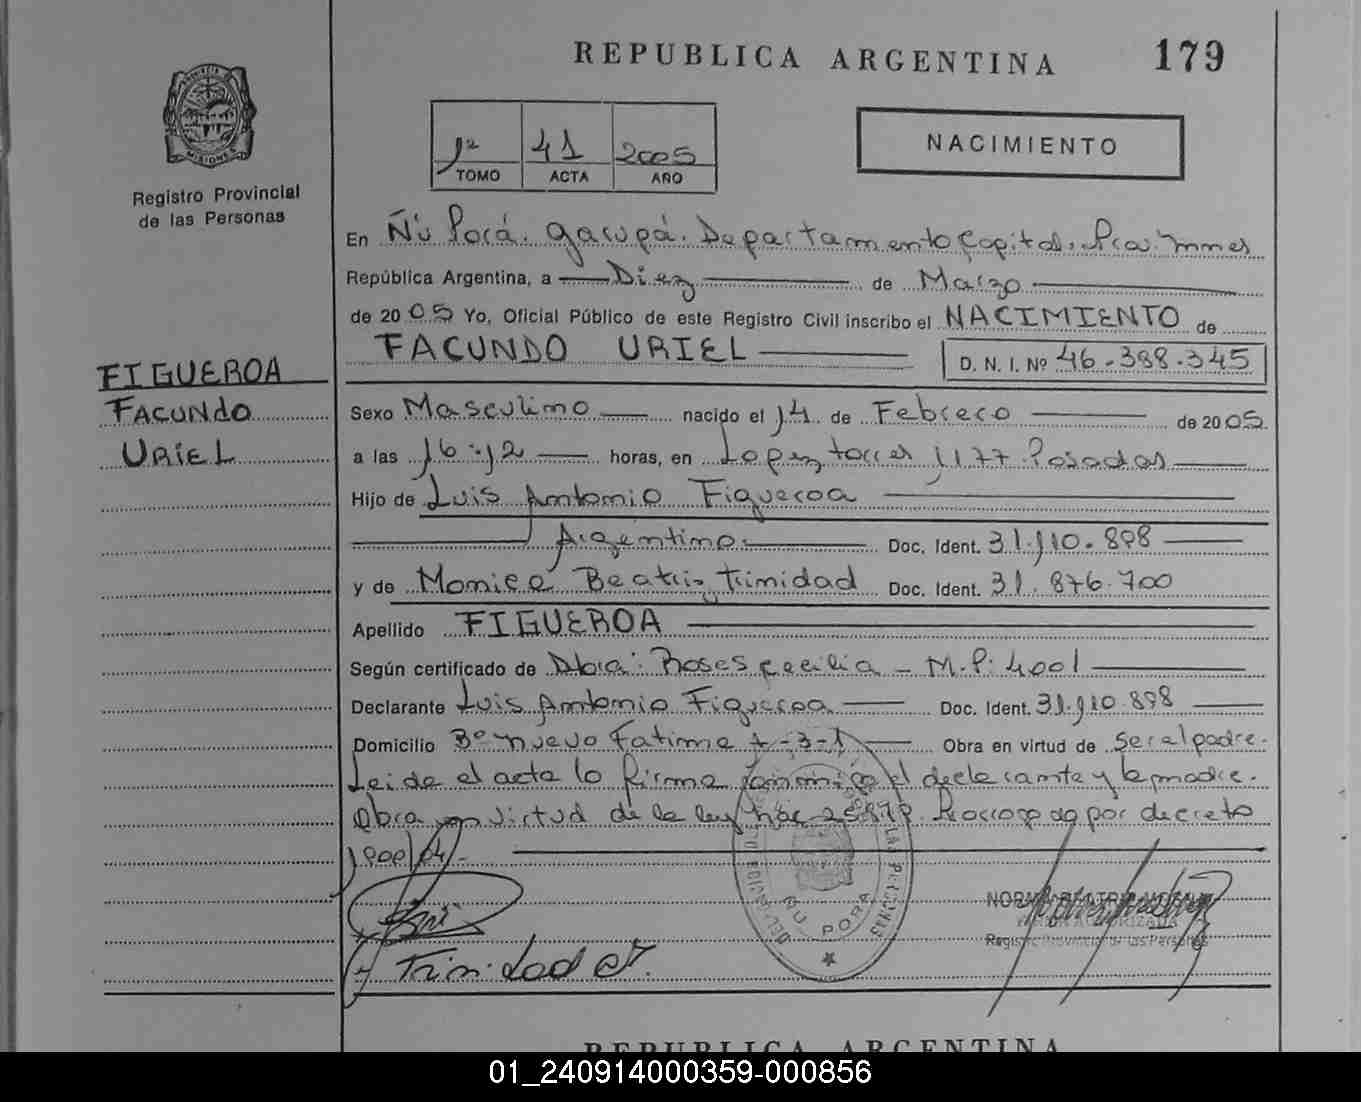 REPUBLICA ARGENTINA 179
MISIONES
Registro Provincial
de las Personas
1º 41 2005
TOMO ACTA AÑO
NACIMIENTO
En Ñú Porá. Garupá. Departamento Capital. Prov. Mnes
República Argentina, a Diez de Marzo
de 2005 Yo, Oficial Público de este Registro Civil inscribo el NACIMIENTO de
FACUNDO URIEL D. N. I. Nº 46-388-345
FIGUEROA
FACUNDO
URIEL
Sexo Masculino nacido el 14 de Febrero de 2005.
a las 16:12 horas, en Lopez torres 1177. Posadas
Hijo de Luis Antonio Figueroa
Argentino. Doc. Ident. 31.110.898
y de Monica Beatriz Trinidad Doc. Ident. 31.876.700
Apellido FIGUEROA
Según certificado de Dora: Roses Cecilia - M.P: 4001
Declarante Luis Antonio Figueroa Doc. Ident. 31.110.898
Domicilio Bº nuevo Fatima 4-3-1 Obra en virtud de ser el padre.
Leida el acta lo firma conmigo el declarante y la madre.
Obra en virtud de la ley nac. Prorrogado por decreto
DELEGACION ÑU PORA
LAS PERSONAS
Trinidad
Registro Provincial de las Personas
REPUBLICA ARGENTINA
01_240914000359-000856